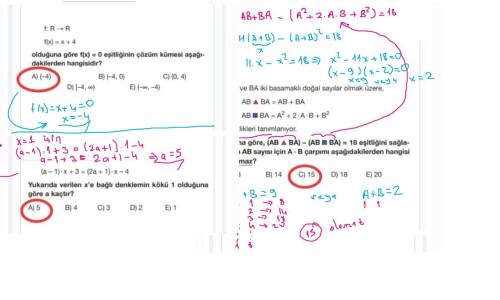 f: R → R
f(x) = x + 4
olduğuna göre f(x) = 0 eşitliğinin çözüm kümesi aşağı-
dakilerden hangisidir?
A) {–4} B) (–4, 0) C) (0, 4)
D) [–4, ∞) E) (–∞, –4)
f(x)=x+4=0
x=-4
x=1 için
(a-1).1+3=(2a+1).1-4
a-1+3=2a+1-4 ⇒ a=5
(a – 1)·x + 3 = (2a + 1)·x – 4
Yukarıda verilen x'e bağlı denklemin kökü 1 olduğuna
göre a kaçtır?
A) 5 B) 4 C) 3 D) 2 E) 1
AB+BA - (A²+2.A.B+B²)=18
11(A+B) - (A+B)²=18
x
11.x - x²=18 ⇒ x²-11x+18=0
(x-9)(x-2)=0
x=9 veya x=2
ve BA iki basamaklı doğal sayılar olmak üzere,
AB ▲ BA = AB + BA
AB ■ BA = A² + 2·A·B + B²
likleri tanımlanıyor.
na göre, (AB ▲ BA) – (AB ■ BA) = 18 eşitliğini sağla-
AB sayısı için A · B çarpımı aşağıdakilerden hangisi
maz?
B) 14 C) 15 D) 18 E) 20
+B=9 veya A+B=2
1 → 8 1 1
2 → 14
3 → 18
4 → 20
15 olamaz